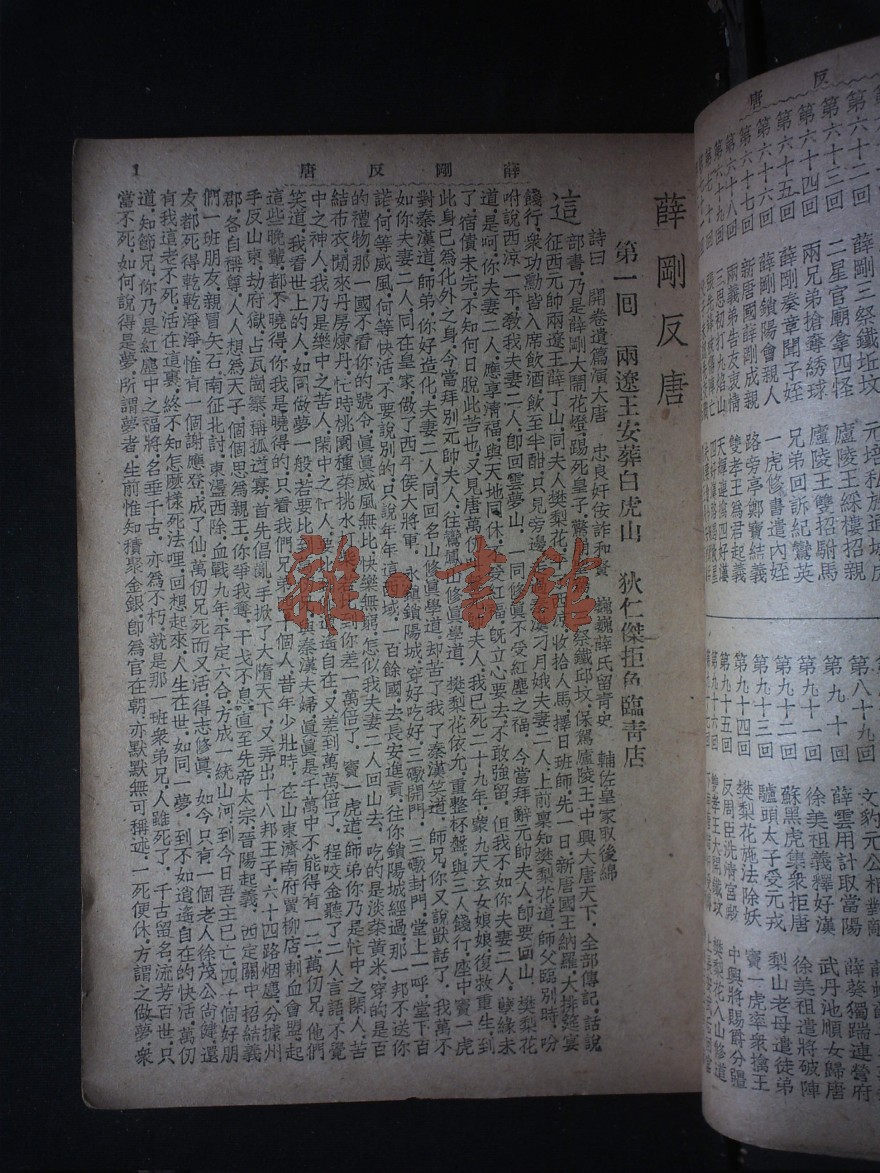 反
唐
第六十三回
第六十四回
第六十五回
第六十六回
第六十七回
第六十八回
第六十九回
薛剛三祭鐵坵墳
二星官廟拿四怪
兩兄弟搶奪綉球
薛剛奏章聞子姪
薛剛鎖陽會親人
新唐國薛剛成親
兩義弟告友衷情
三思初打九焰山
元培私放
廬陵王綵樓招親
廬陵王雙招駙馬
兄弟回訴紀鸞英
一虎修書遺內姪
路旁亭鄭寶結義
雙孝王為君起義
第八十九回
第九十回
第九十一回
第九十二回
第九十三回
第九十四回
第九十五回
文豹元公相對敵
薛雲用計取當陽
徐美祖義釋好漢
蘇黑虎集衆拒唐
驢頭太子受元戎
樊梨花施法除妖
反周臣洗清宮殿
雙孝王大開鐵坟
薛葵獨踹連營府
武丹池順女歸唐
徐美祖遣將破陣
梨山老母遣徒弟
竇一虎率衆擒王
中興將賜爵分疆
樊梨花入山修道
薛剛反唐
1
薛剛反唐
第一回 兩遼王安葬白虎山 狄仁傑拒色臨青店
詩曰 開卷遺篇演大唐 忠良奸佞詐和賢 巍巍薛氏留青史 輔佐皇家取後綿
這部書乃是薛剛大鬧花燈踢死皇子驚 祭鐵邱坟保駕廬陵王中興大唐天下全部傳記話說
征西元帥兩遼王薛丁山同夫人樊梨花 收拾人馬擇日班師先一日新唐國王納羅大排筵宴
餞行衆功勳皆入席飲酒飲至半酣只見旁邊 漢刁月娥夫妻二人上前稟知樊梨花道師父臨別時吩
咐說西涼一平敎我夫妻二人卽回雲夢山 同修眞不受紅塵之福今當拜辭元帥夫人卽要回山樊梨花
道是呵你夫妻二人應享清福與天地同休 受紅福旣立心要去不敢強留但我不如你夫妻二人孽緣未
了宿債未完不知何日脫此苦也又見唐萬仞 夫人我已死二十九年蒙九天玄女娘娘復救重生到
此身已為化外之身今當拜別元帥夫人往鸞鳳山修眞學道却苦了我了秦漢笑道師兄你又說獃話了我萬不
對秦漢道師弟你好造化夫妻二人同回名山修眞學道 樊梨花依允重整杯盤與三人餞行座中竇一虎
如你夫妻二人同在皇家做了西平侯大將軍永鎭鎖陽城穿好吃好三礮開門三礮封門堂上一呼堂下百
諾何等威風何等快活不要說別的只說年年這西域一百餘國去長安進貢往你鎖陽城經過那一邦不送你
的禮物那一國不看你的號令眞眞威風無比快樂無窮怎似我夫妻二人回山去吃的是淡菜黃米穿的是百
結布衣閒來丹房煉丹忙時桃園種菜挑水 你差一萬倍了竇一虎道師弟你乃是忙中之閑人苦
中之神人我乃是樂中之苦人閑中之忙人要比 逍遙自在又差到萬萬倍了程咬金聽了二人言語不覺
笑道我看世上的人如同做夢一般若要比 眞秦漢夫婦眞眞是千萬中不能得有一二萬仞兄他們
這些晚輩都不曉得你我是曉得的只看我們兄 個人昔年少壯時在山東濟南府賈柳店刺血會盟起
手反山東劫府獄占瓦崗寨稱孤道寡首先倡亂手掀了大隋天下又弄出十八邦王子六十四路烟塵分據州
郡各自稱尊人人想為天子個個思爲親王你爭我奪干戈不息直至先帝太宗晉陽起義西定關中招結義
們一班朋友親冒矢石南征北討東盪西除血戰九年平定六合方成一統山河到今日吾主已亡四十個好朋
友都死得乾乾淨淨惟有一個謝應登成了仙萬仞兄死而又活得志修眞如今只有一個老人徐茂公尚健還
有我這老不死活在這裏終不知怎麼樣死法哩回想起來人生在世如同一夢到不如逍遙自在的快活萬仞
道知節兄你乃是紅塵中之福將名垂千古亦為不朽就是那一班衆弟兄人雖死了千古留名流芳百世只
當不死如何說得是夢所謂夢者生前惟知積聚金銀卽為官在朝亦默默無可稱述一死便休方謂之做夢衆
雜·書館